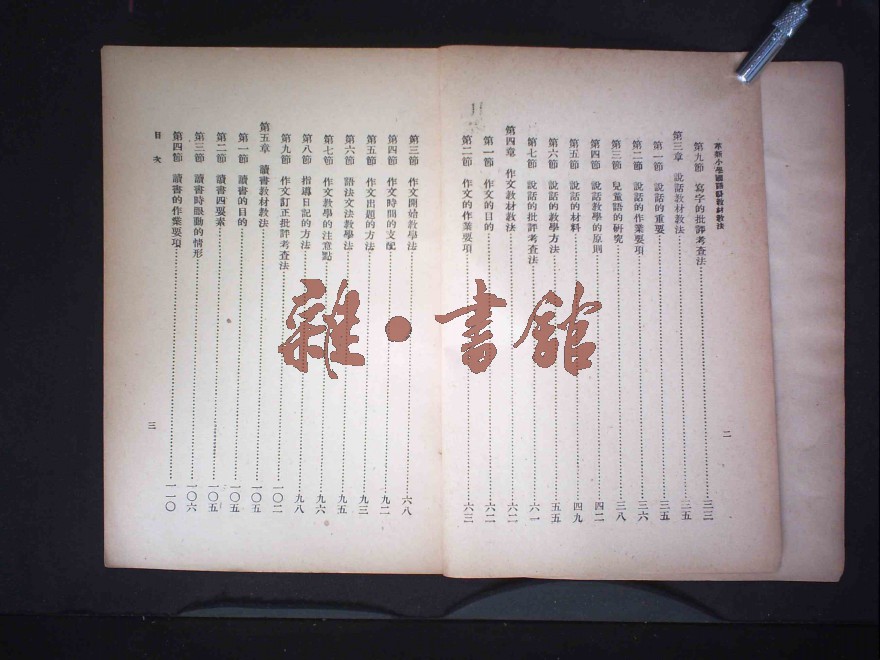 革新小學國語科教材教法
第九節 寫字的批評考查法 三三
第三章 說話教材教法 三五
第一節 說話的重要 三五
第二節 說話的作業要項 三六
第三節 兒童語的研究 三八
第四節 說話教學的原則 四二
第五節 說話的材料 四九
第六節 說話的教學方法 五五
第七節 說話的批評考查法 六一
第四章 作文教材教法 六二
第一節 作文的目的 六二
第二節 作文的作業要項 六三
二
第三節 作文開始教學法 六八
第四節 作文時間的支配 九二
第五節 作文出題的方法 九三
第六節 語法文法教學法 九五
第七節 作文教學的注意點 九六
第八節 指導日記的方法 九八
第九節 作文訂正批評考查法 一〇二
第五章 讀書教材教法 一〇五
第一節 讀書的目的 一〇五
第二節 讀書四要素 一〇五
第三節 讀書時眼動的情形 一〇六
第四節 讀書的作業要項 一一〇
目次
三
雜·書館